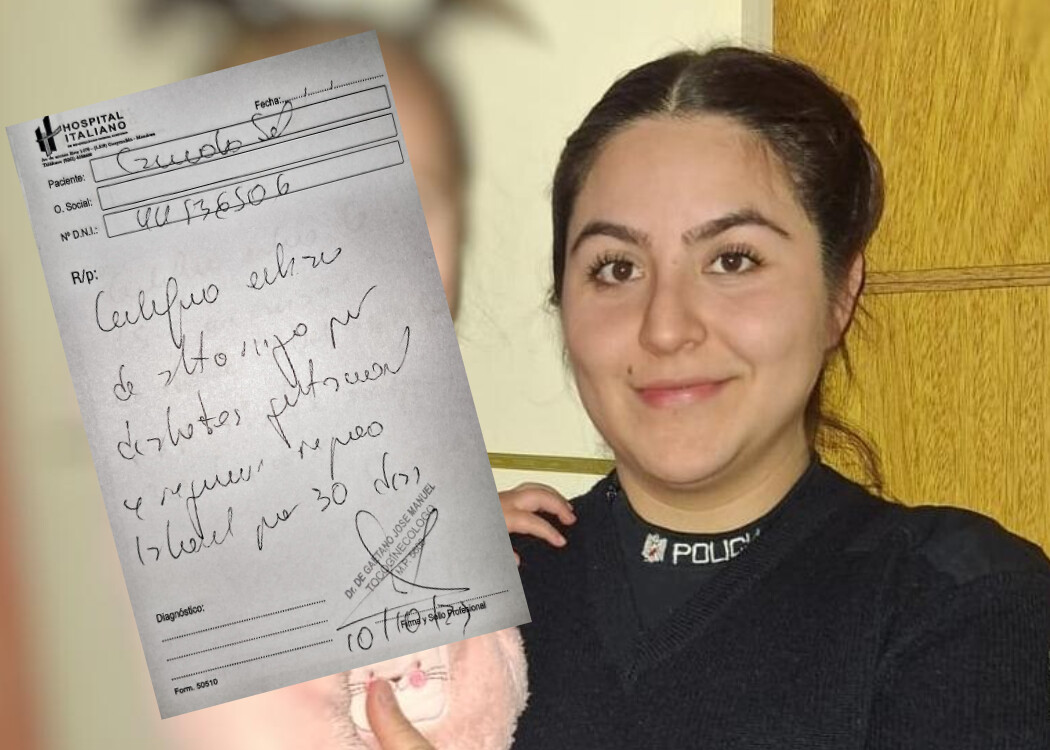 HOSPITAL
ITALIANO
Fecha:
Paciente: Sol
O. Social:
Nº D.N.I.:
R/p:
Certifico
de alto riesgo por
diabetes gestacional
y requiere reposo
laboral por 30 días
Dr. DE GAETANO JOSE MANUEL
TOCOGINECOLOGO
M.P.
10/10/23
Firma y Sello Profesional
Diagnóstico:
Form. 50510
POLICIA